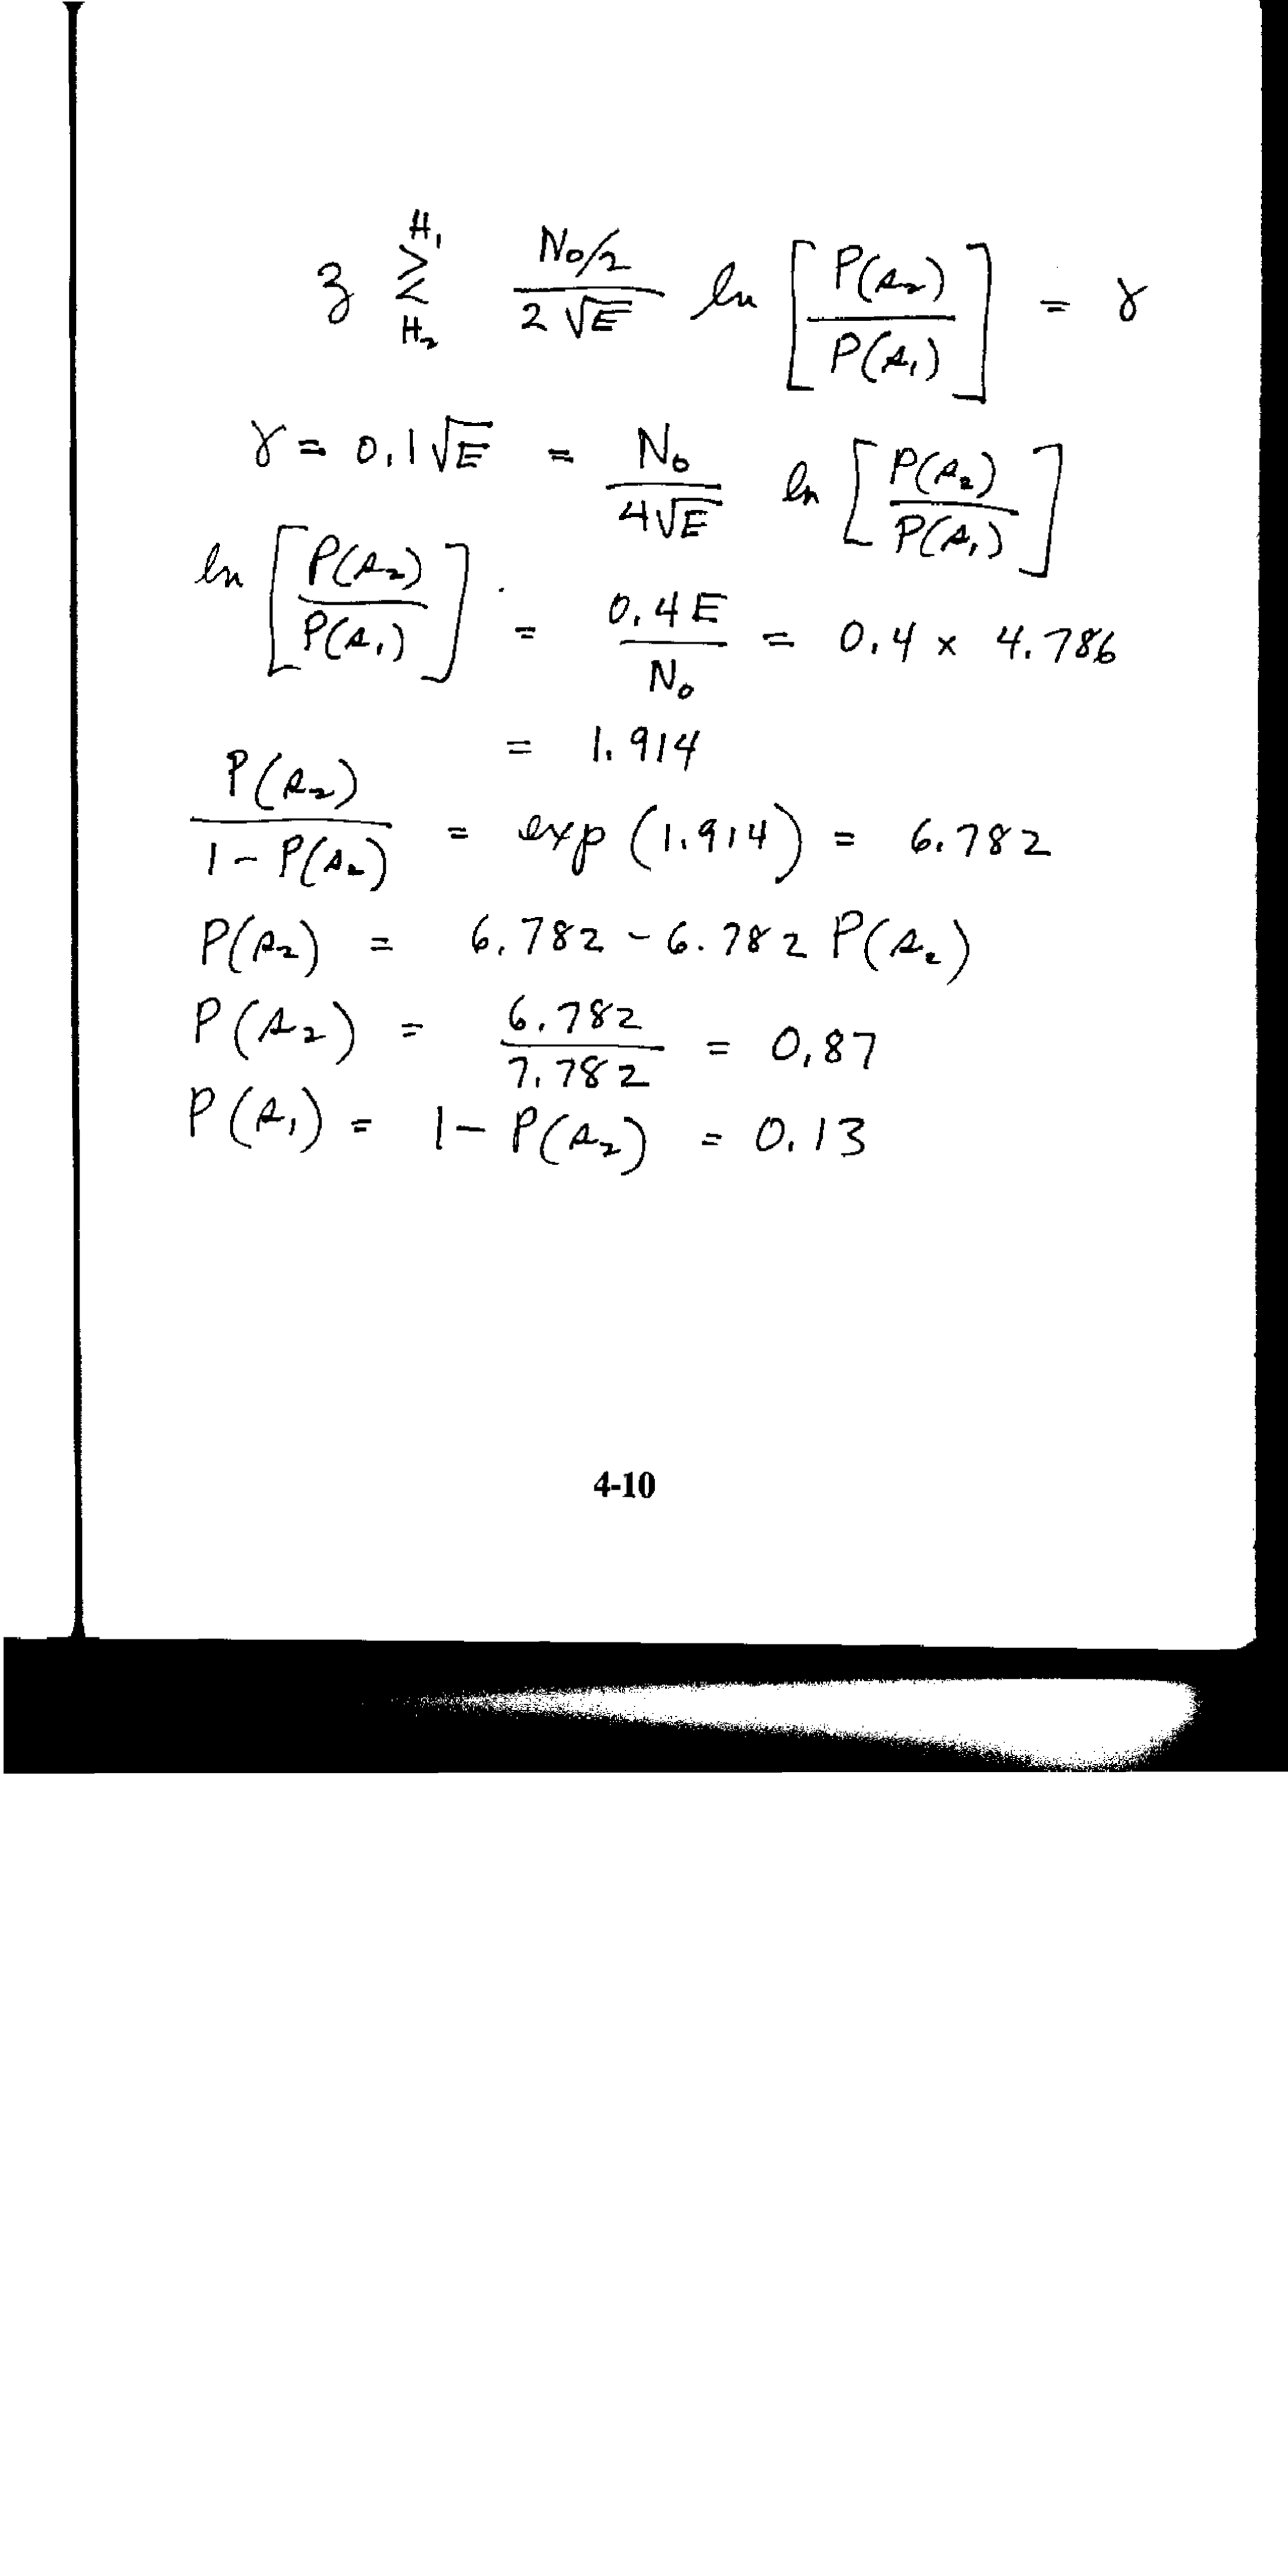 z ≷ (H₁ above, H₂ below) (N₀/2)/(2√E) ln [P(s₂)/P(s₁)] = γ
γ = 0.1√E = N₀/(4√E) ln [P(s₂)/P(s₁)]
ln [P(s₂)/P(s₁)] = 0.4E/N₀ = 0.4 × 4.786
= 1.914
P(s₂)/(1 - P(s₂)) = exp (1.914) = 6.782
P(s₂) = 6.782 - 6.782 P(s₂)
P(s₂) = 6.782/7.782 = 0.87
P(s₁) = 1 - P(s₂) = 0.13
4-10